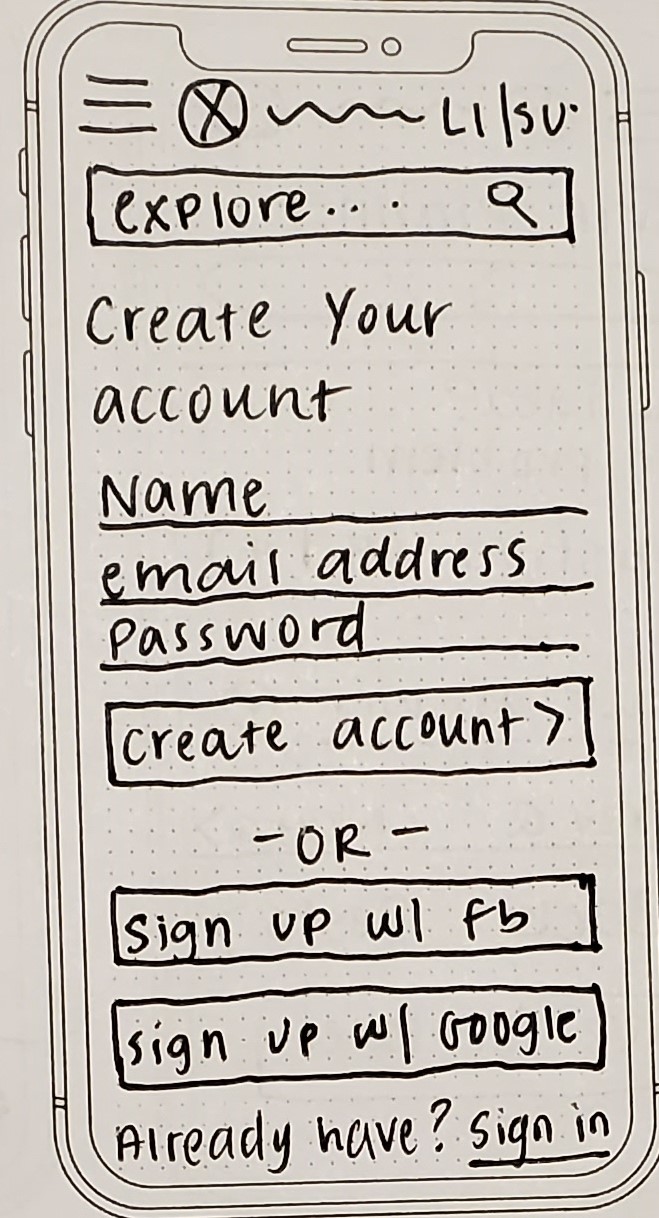 LI/SU
explore...
Create Your
account
Name
email address
Password
create account >
- OR -
sign up w/ fb
sign up w/ Google
Already have? sign in